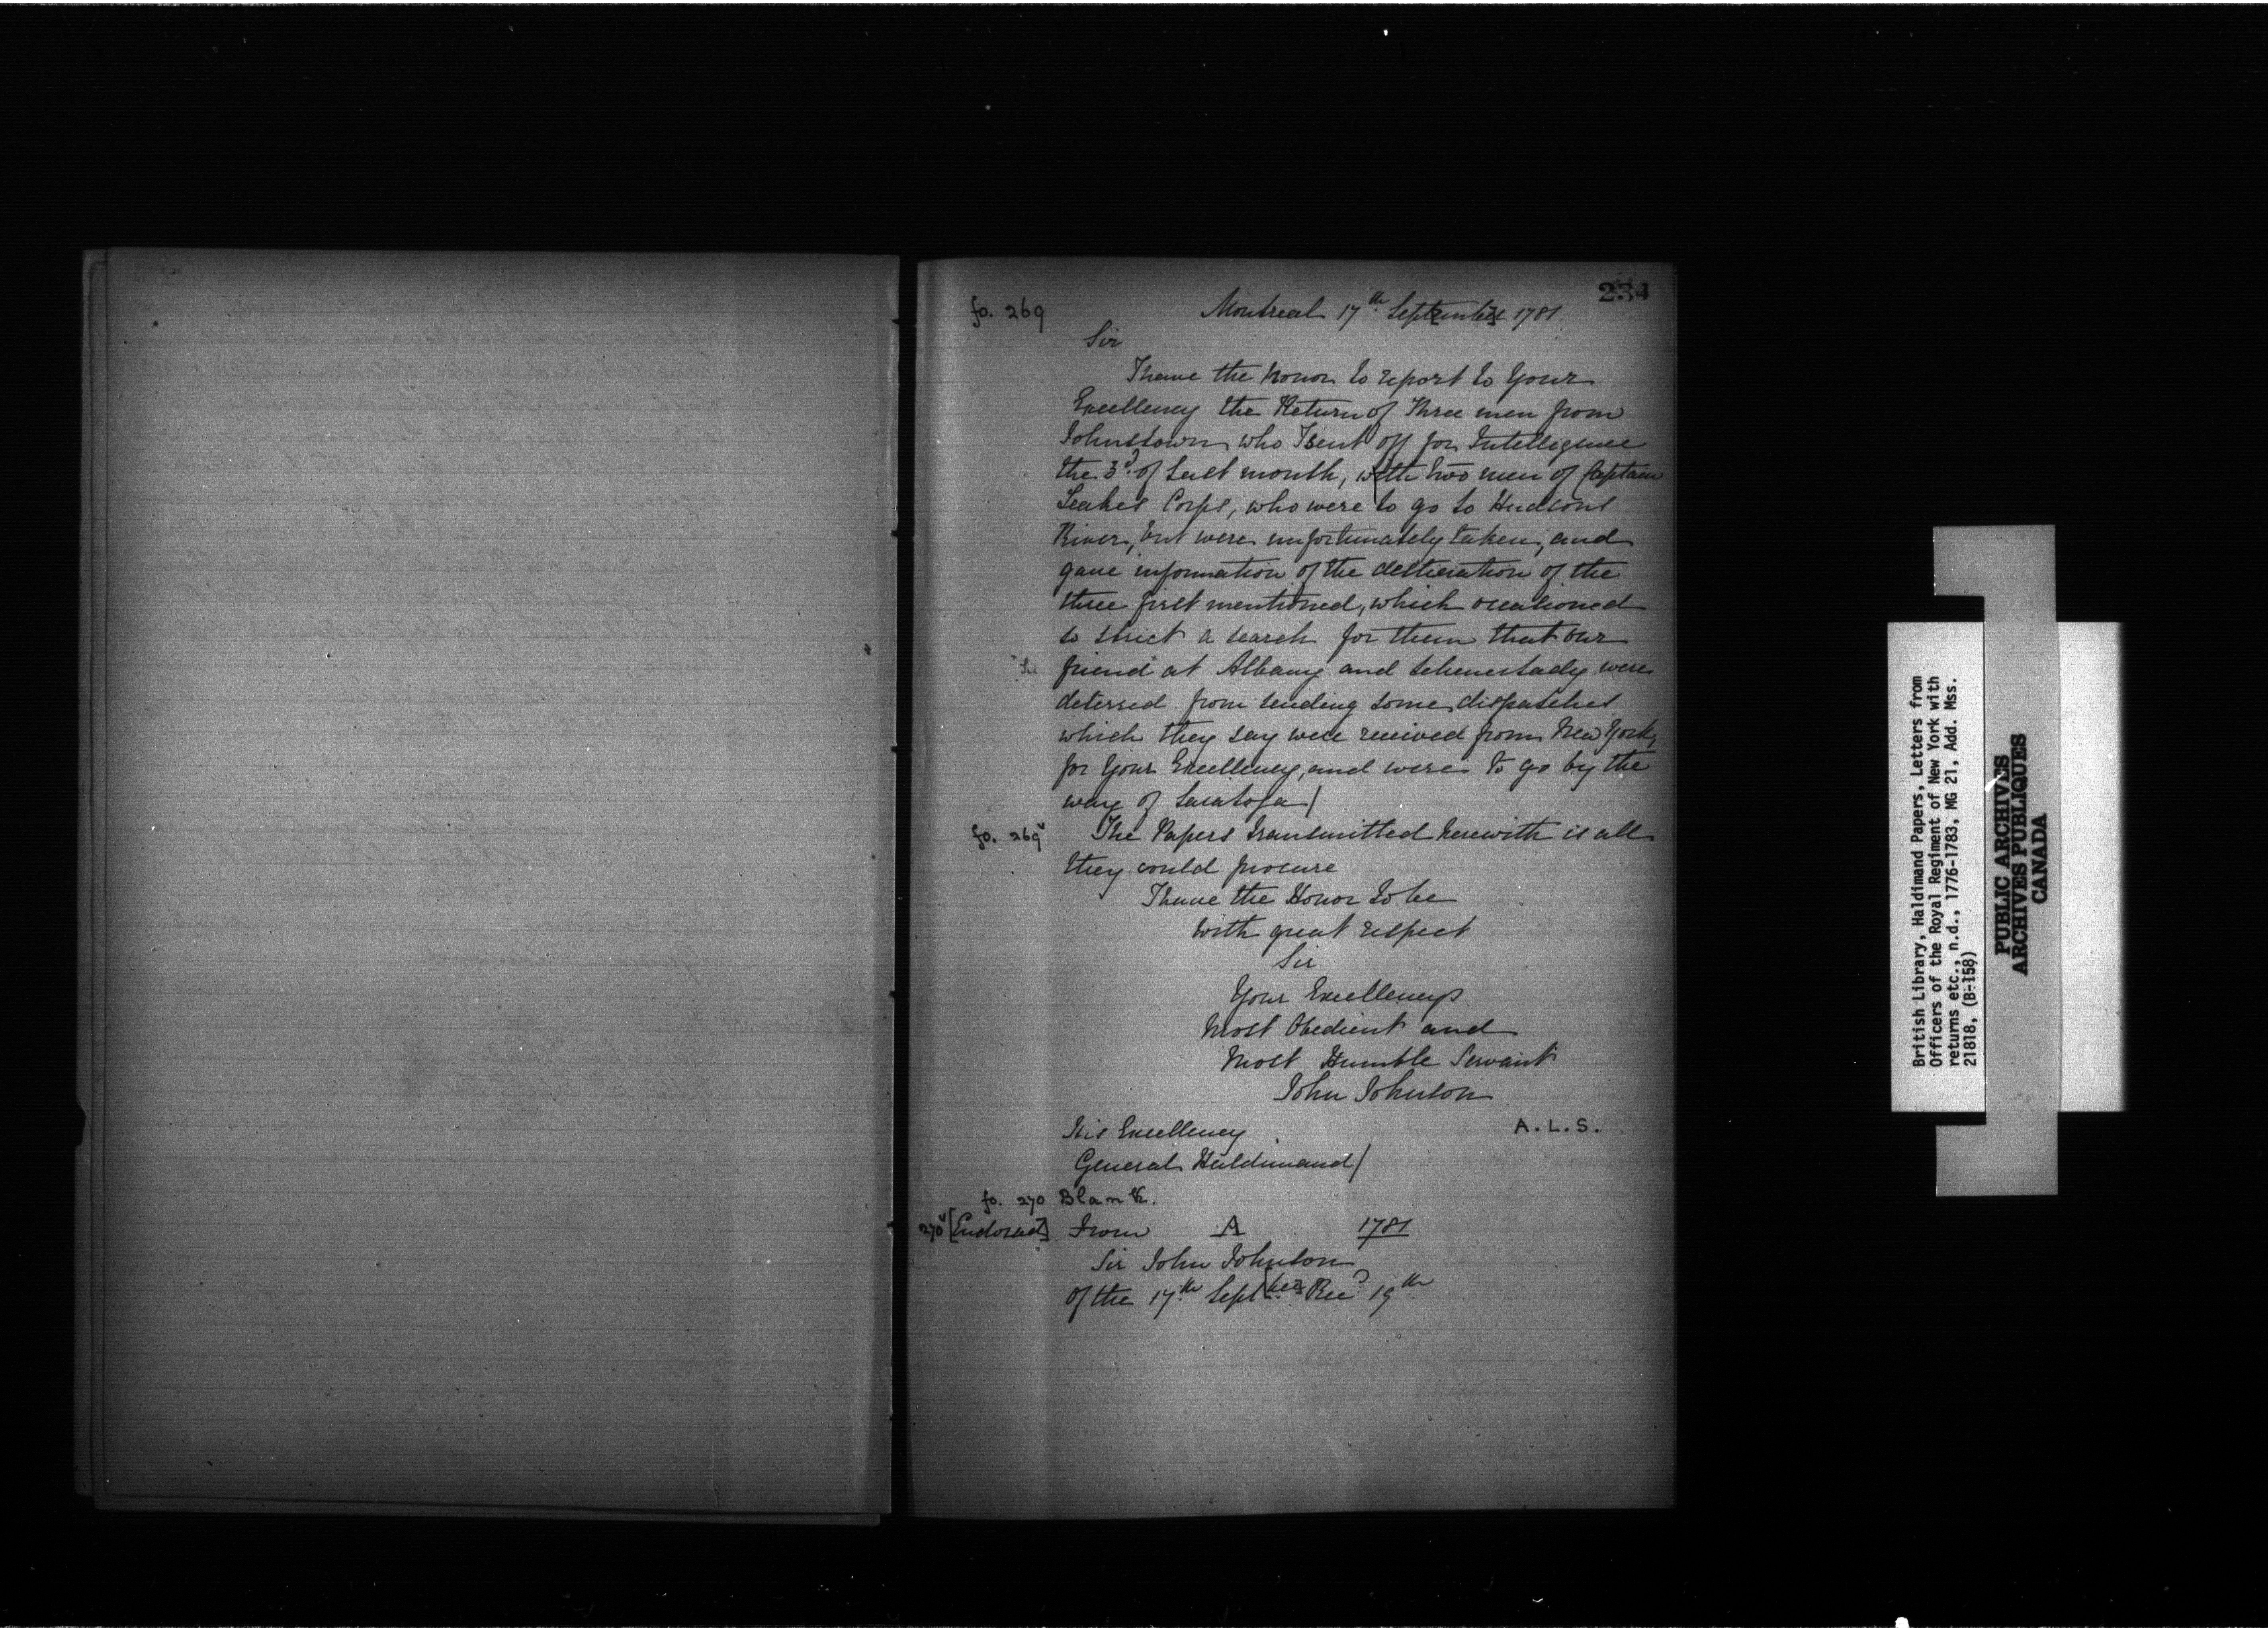 234
fo. 269 Montreal 17th. Sept[embe]r 1781.
Sir
I have the honor to report to Your
Excellency the Return of Three men from
Johnstown who I sent off for Intelligence
the 3d. of last month, with two men of Captain
Leakes Corps, who were to go to Hudsons
River, but were unfortunately taken, and
gave information of the destination of the
three first mentioned, which occationed
so strict a search for them that our
friend at Albany and Schenectady were
deterred from sending some dispatches
which they say were received from New York,
for Your Excellency, and were to go by the
way of Saratoga/
fo. 269v The Papers transmitted herewith is all
they could procure
I have the Honor to be
with great respect
Sir
Your Excellencys
Most Obedient and
Most Humble Servant
John Johnson
A.L.S.
His Excellency
General Haldimand/
fo. 270 Blank.
270v [Endorsed] From A 1781
Sir John Johnson
of the 17th Sept[ber] Recd. 19th
British Library, Haldimand Papers, Letters from
Officers of the Royal Regiment of New York with
returns etc., n.d., 1776-1783, MG 21, Add. Mss.
21818, (B-158)
PUBLIC ARCHIVES
ARCHIVES PUBLIQUES
CANADA